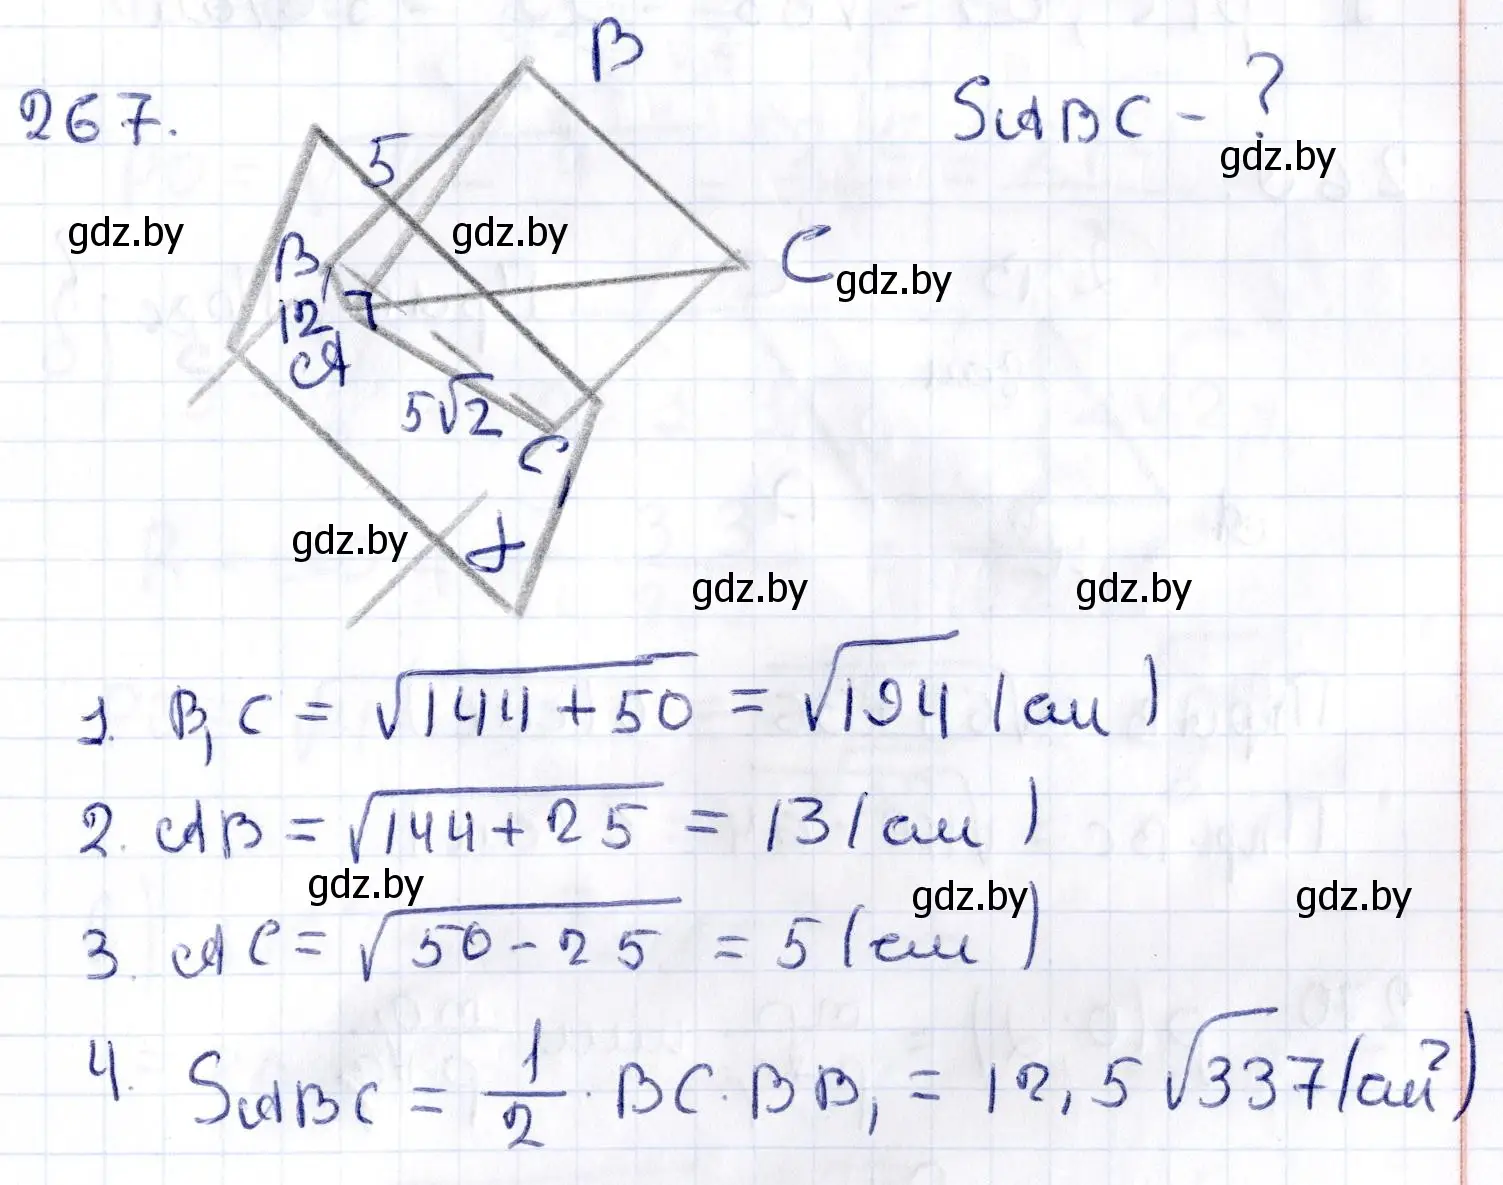 267.
B
S ABC - ?
gdz.by
5
gdz.by
gdz.by
B₁
C
gdz.by
12
7
A
5√2
C₁
gdz.by
gdz.by
gdz.by
1. B₁C = √144+50 = √194 (см)
2. AB = √144+25 = 13 (см)
gdz.by
gdz.by
gdz.by
3. AC = √50-25 = 5 (см)
4. S ABC = 1/2 · BC · BB₁ = 12,5 √337 (см²)